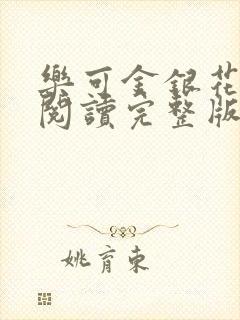 樂可金銀花
閱讀完整版
姚育東